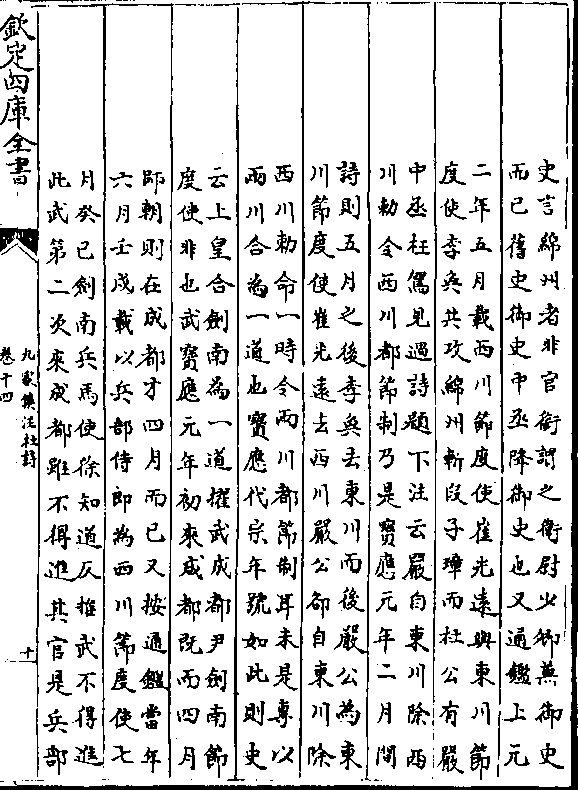 史言綿州者非官銜謂之衛尉少卿兼御史
而已舊史御史中丞降御史也又通鑑上元
二年五月載西川節度使崔光遠與東川節
度使李奐共攻綿州斬段子璋而杜公有嚴
中丞枉駕見過詩題下注云嚴自東川除西
川勅令西川都節制乃是寶應元年二月間
詩則五月之後李奐去東川而後嚴公為東
川節度使崔光遠去西川嚴公卻自東川除
西川勅命一時令兩川都節制耳未是專以
兩川合為一道也寶應代宗年號如此則史
云上皇合劍南為一道擢武成都尹劍南節
度使非也武寶應元年初來成都既而四月
歸朝則在成都才四月而已又按通鑑當年
六月壬戌載以兵部侍郎為西川節度使七
月癸巳劍南兵馬使徐知道反推武不得進
此武第二次來成都雖不得進其官是兵部
欽定四庫全書
九家集注杜詩
卷十四
十